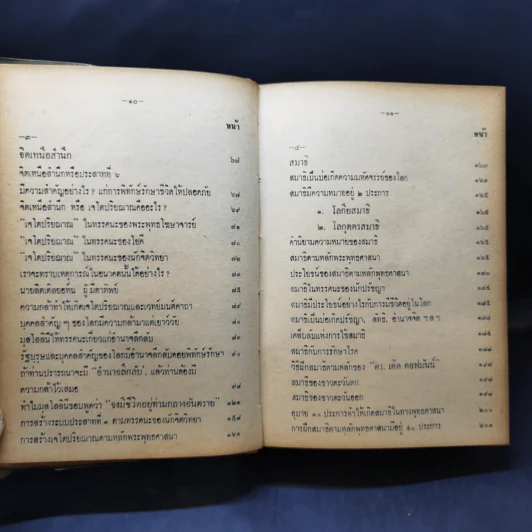 —๑๐—
หน้า
—๓—
จิตเหนือสำนึก ๖๗
จิตเหนือสำนึกหรือประสาทที่ ๖
มีความสำคัญอย่างไร ? แก่การพิทักษ์รักษาชีวิตให้ปลอดภัย ๖๘
จิตเหนือสำนึก หรือ เจโตปริยญาณคืออะไร ? ๖๙
"เจโตปริยญาณ" ในทรรศนะของพระพุทธโฆษาจารย์ ๘๑
"เจโตปริยญาณ" ในทรรศนะของโยคี
"เจโตปริยญาณ" ในทรรศนะของนักจิตวิทยา ๘๒
เราจะทราบเหตุการณ์ในอนาคตนี้ได้อย่างไร ?
นายลิตเติลยอห์น ผู้มีตาทิพย์ ๘๕
ความกล้าทำให้เกิดเจโตปริยญาณและเวทย์มนต์คาถา
บุคคลสำคัญ ๆ ของโลกมีความกล้ามาแต่เยาว์วัย
มุสโสลินีให้ทรรศนะเกี่ยวแก่อำนาจลึกลับ
รัฐบุรุษและบุคคลสำคัญของโลกมีอำนาจลึกลับคอยพิทักษ์รักษา
ถ้าท่านปรารถนาจะมี "อำนาจลึกลับ", แล้วท่านต้องมี
ความกล้าไว้เสมอ
ทำไมมุสโสลินีชอบพูดว่า "จงมีชีวิตอยู่ท่ามกลางอันตราย"
การสร้างระบบประสาทที่ ๑ ตามทรรศนะของนักจิตวิทยา ๑๕๙
การสร้างเจโตปริยญาณตามหลักพระพุทธศาสนา ๑๖๑
—๑๑—
หน้า
—๔—
สมาธิ
สมาธิเป็นบ่อเกิดความมหัศจรรย์ของโลก
สมาธิมีความหมายอยู่ ๒ ประการ ๑๖๕
๑. โลกิยสมาธิ ๑๖๕
๒. โลกุตตรสมาธิ ๑๖๕
คำนิยามความหมายของสมาธิ
สมาธิตามหลักพระพุทธศาสนา
ประโยชน์ของสมาธิตามหลักพุทธศาสนา
สมาธิในทรรศนะของนักปรัชญา
สมาธิมีประโยชน์อย่างไรกับการมีชีวิตอยู่ในโลก
สมาธิเป็นบ่อเกิดปรัชญา, ลัทธิ, อำนาจจิต ฯลฯ
เคล็ดลับแห่งการใช้สมาธิ
สมาธิกับการรักษาโรค
วิธีฝึกสมาธิตามหลักของ "ดร. เค็ด คอฟมันน์"
สมาธิของชาวตะวันตก
สมาธิของชาวตะวันออก
อุบาย ๑๐ ประการทำให้เกิดสมาธิในทางพุทธศาสนา ๒๐๐
การฝึกสมาธิตามหลักพุทธศาสนามีอยู่ ๔๐ ประการ ๒๐๑